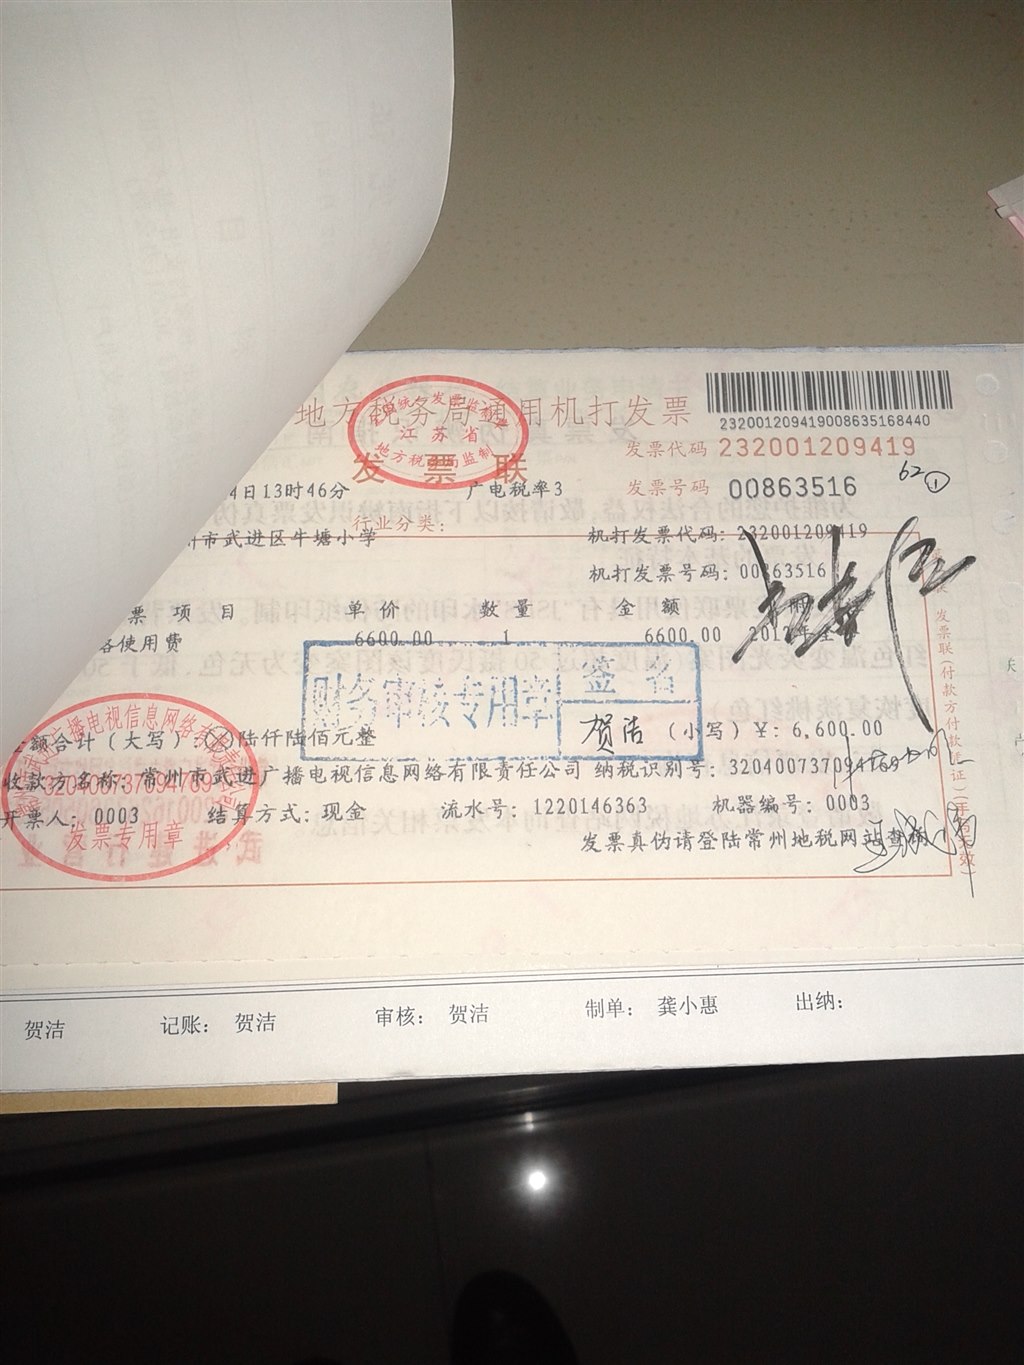 地方税务局通用机打发票
江苏省
地方税务局监制
发票联
232001209419008635168440
发票代码 232001209419
发票号码 00863516
62 ①
4日13时46分 广电税率3
行业分类：
州市武进区牛塘小学
机打发票代码：232001209419
机打发票号码：00863516
票 项 目 单 价 数 量 金 额 附
使用费 6600.00 1 6600.00
财务审核专用章 签名
贺洁
金额合计（大写）：ⓧ陆仟陆佰元整 （小写）￥：6,600.00
收款方名称：常州市武进广播电视信息网络有限责任公司 纳税识别号：320400737094789
开票人：0003 结算方式：现金 流水号：1220146363 机器编号：0003
发票真伪请登陆常州地税网站查询
播电视信息网络有
320400737094789
发票专用章
发票联（付款方付款凭证）（手
贺洁 记账： 贺洁 审核： 贺洁 制单： 龚小惠 出纳：